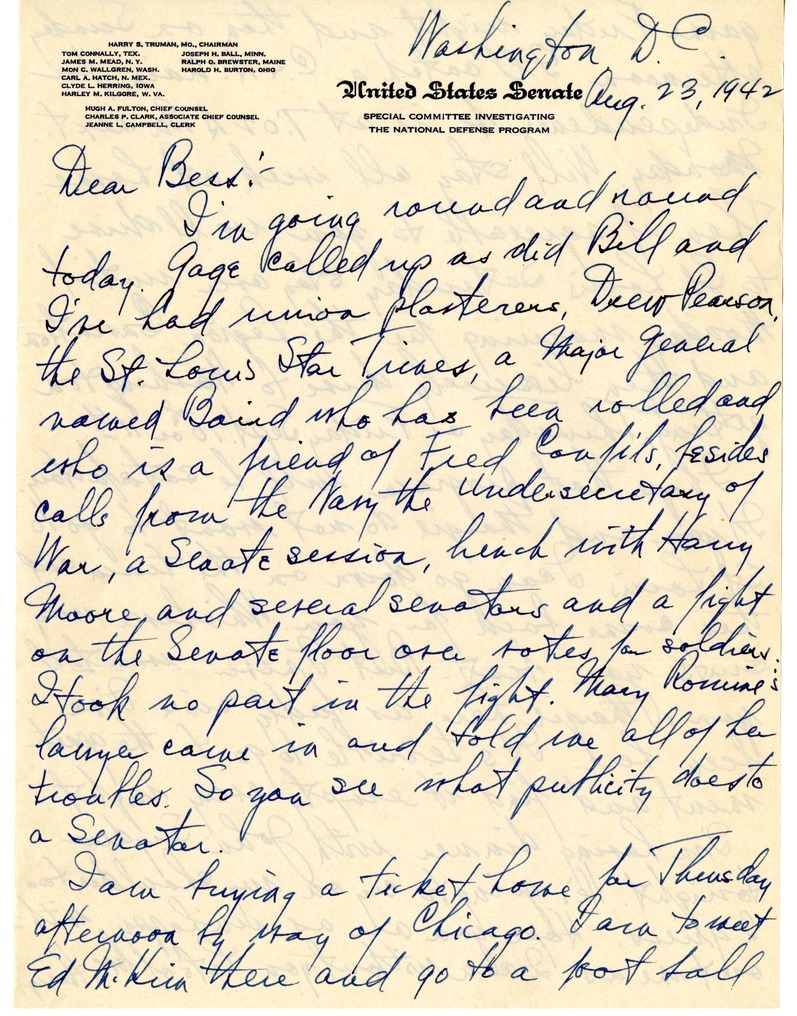 HARRY S. TRUMAN, MO., CHAIRMAN
TOM CONNALLY, TEX. JOSEPH H. BALL, MINN.
JAMES M. MEAD, N. Y. RALPH O. BREWSTER, MAINE
MON C. WALLGREN, WASH. HAROLD H. BURTON, OHIO
CARL A. HATCH, N. MEX.
CLYDE L. HERRING, IOWA
HARLEY M. KILGORE, W. VA.
HUGH A. FULTON, CHIEF COUNSEL
CHARLES P. CLARK, ASSOCIATE CHIEF COUNSEL
JEANNE L. CAMPBELL, CLERK
Washington, D.C.
United States Senate
Aug. 23, 1942
SPECIAL COMMITTEE INVESTIGATING
THE NATIONAL DEFENSE PROGRAM
Dear Bess:-
I'm going round and round
today. Gage called up as did Bill and
I've had union plasterers, Drew Pearson,
the St. Louis Star Times, a Major General
named Baird who has been rolled and
who is a friend of Fred Confils, besides
calls from the Navy the Undersecretary of
War, a Senate session, lunch with Harry
Moore and several senators and a fight
on the Senate floor over votes for soldiers.
I took no part in the fight. Mary Romine's
lawyer came in and told me all of her
troubles. So you see what publicity does to
a Senator.
I am buying a ticket home for Thursday
afternoon by way of Chicago. I am to meet
Ed McKim there and go to a foot ball